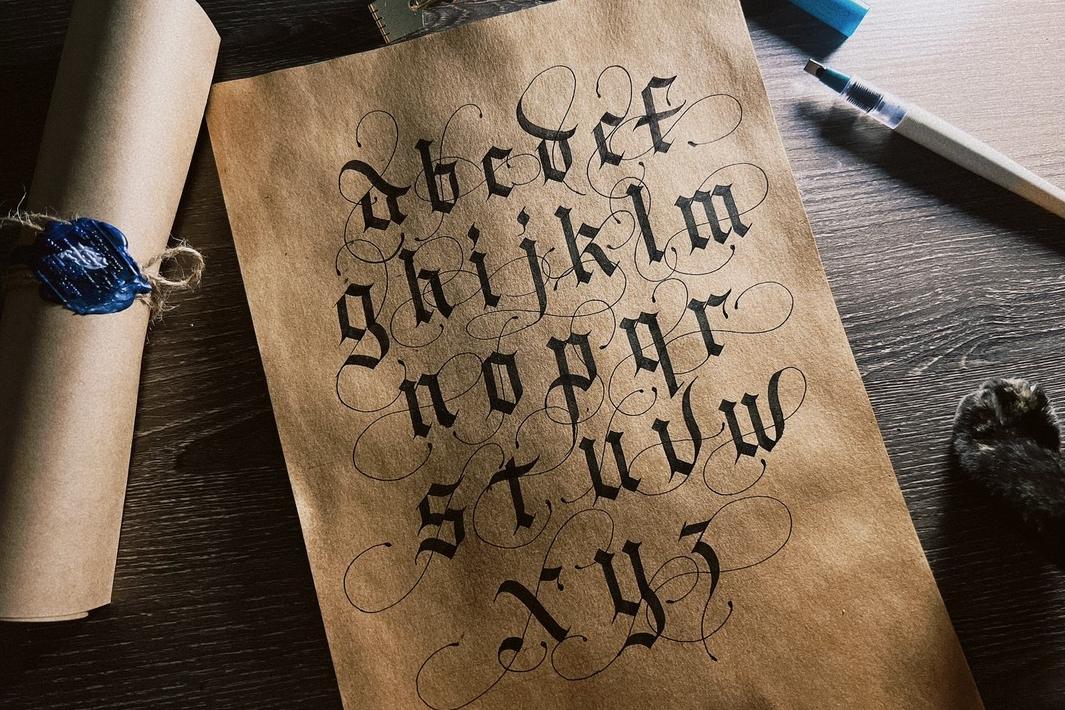 a b c d e f
g h i j k l m
n o p q r
s t u v w
x y z